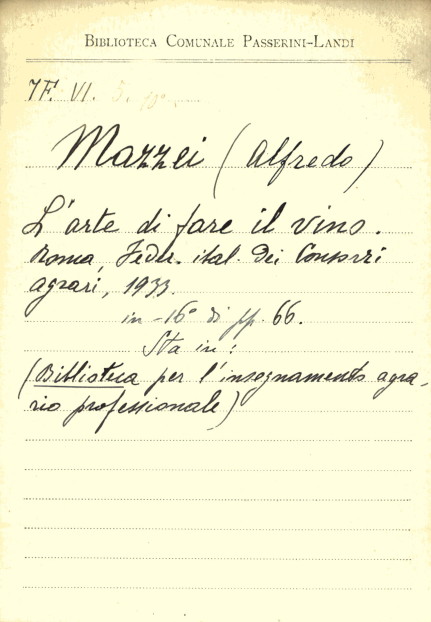 BIBLIOTECA COMUNALE PASSERINI-LANDI
7F. VI. 5.
Mazzei (Alfredo)
L'arte di fare il vino.
Roma, Feder. ital. dei Consorzi
agrari, 1933.
in-16° di pp. 66.
Sta in:
(Biblioteca per l'insegnamento agra-
rio professionale)